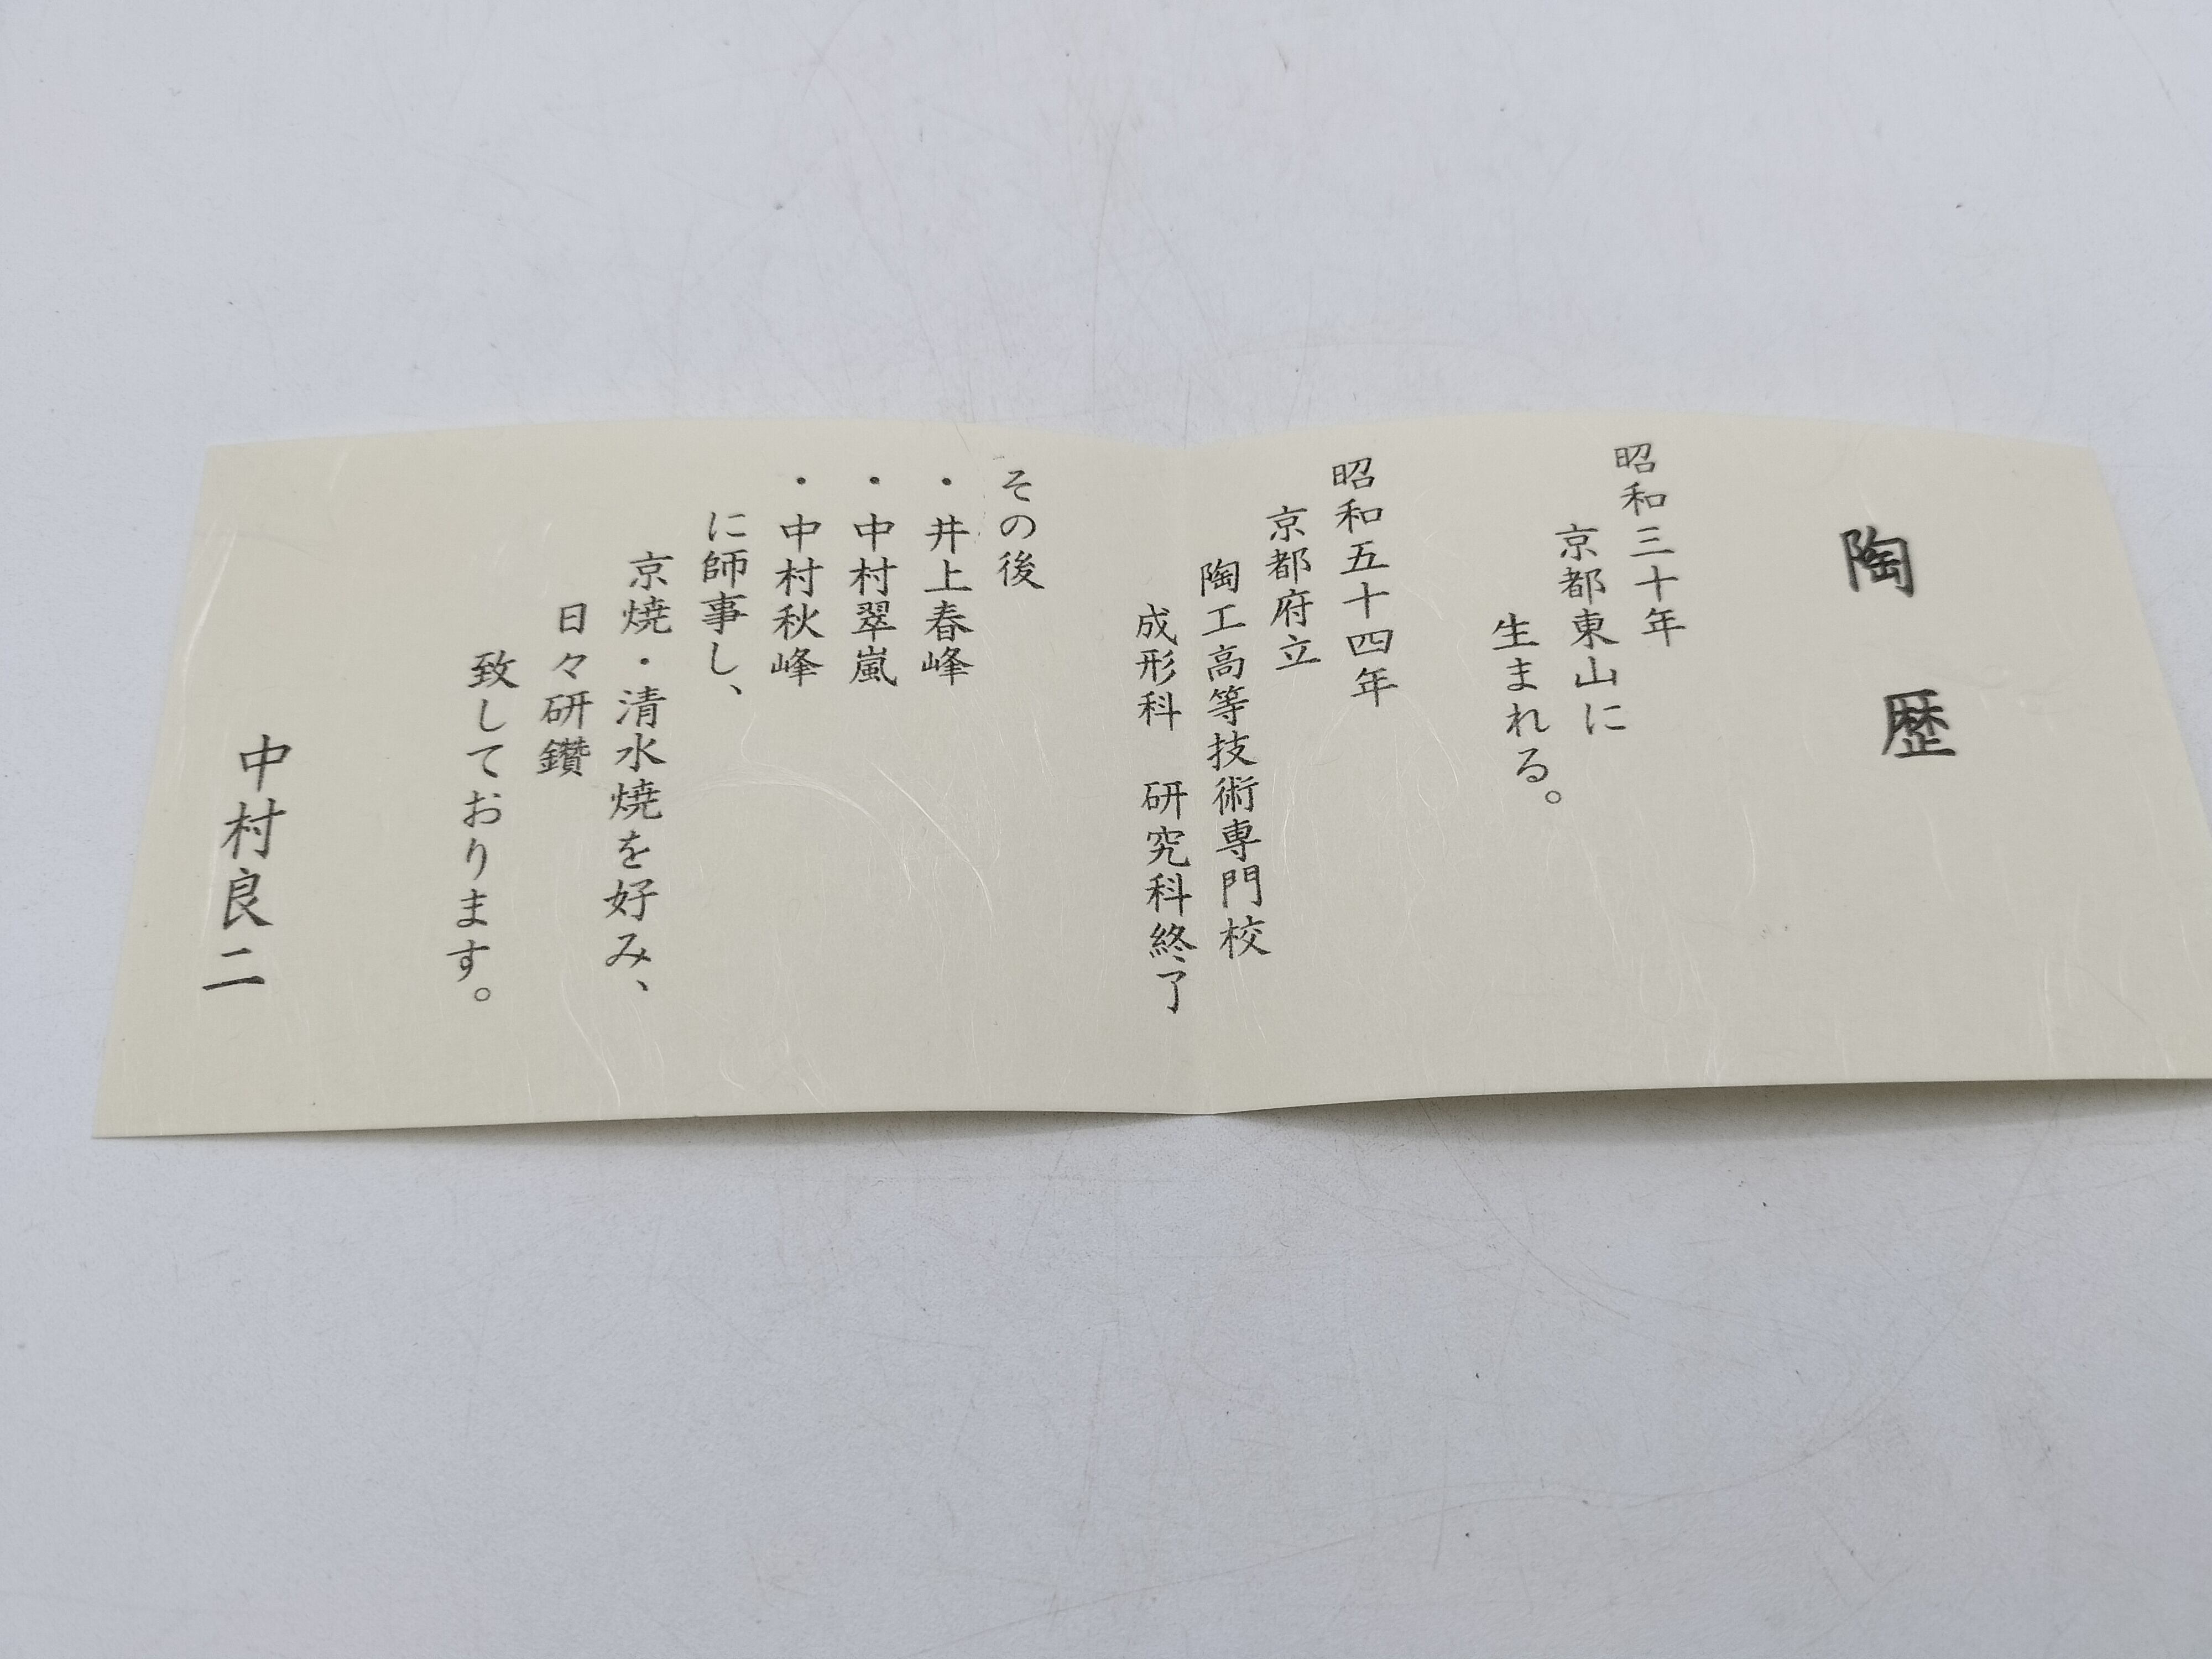 陶 歴
昭和三十年
京都東山に
生まれる。
昭和五十四年
京都府立
陶工高等技術専門校
成形科 研究科終了
その後
・井上春峰
・中村翠嵐
・中村秋峰
に師事し、
京焼・清水焼を好み、
日々研鑽
致しております。
中村良二